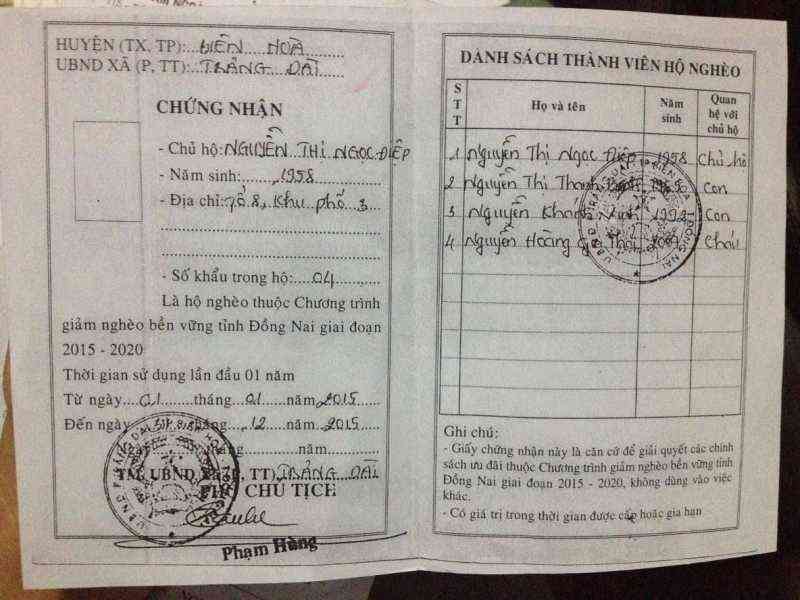 HUYỆN (TX, TP): BIÊN HOÀ
UBND XÃ (P, TT): TRẢNG DÀI
CHỨNG NHẬN
- Chủ hộ: NGUYỄN THỊ NGỌC ĐIỆP
- Năm sinh: 1958
- Địa chỉ: Tổ 8, Khu phố 3
- Số khẩu trong hộ: 04
Là hộ nghèo thuộc Chương trình
giảm nghèo bền vững tỉnh Đồng Nai giai đoạn
2015 - 2020
Thời gian sử dụng lần đầu 01 năm
Từ ngày 01 tháng 01 năm 2015
Đến ngày tháng 12 năm 2015
ngày tháng năm
TM. UBND XÃ (P, TT) TRẢNG DÀI
PHÓ CHỦ TỊCH
Phạm Hùng
DANH SÁCH THÀNH VIÊN HỘ NGHÈO
STT Họ và tên Năm sinh Quan hệ với chủ hộ
1 Nguyễn Thị Ngọc Điệp 1958 Chủ hộ
2 Nguyễn Thị Thanh Con
3 Nguyễn Khánh 1992 Con
4 Nguyễn Hoàng Cháu
Ghi chú:
- Giấy chứng nhận này là căn cứ để giải quyết các chính
sách ưu đãi thuộc Chương trình giảm nghèo bền vững tỉnh
Đồng Nai giai đoạn 2015 - 2020, không dùng vào việc
khác.
- Có giá trị trong thời gian được cấp hoặc gia hạn